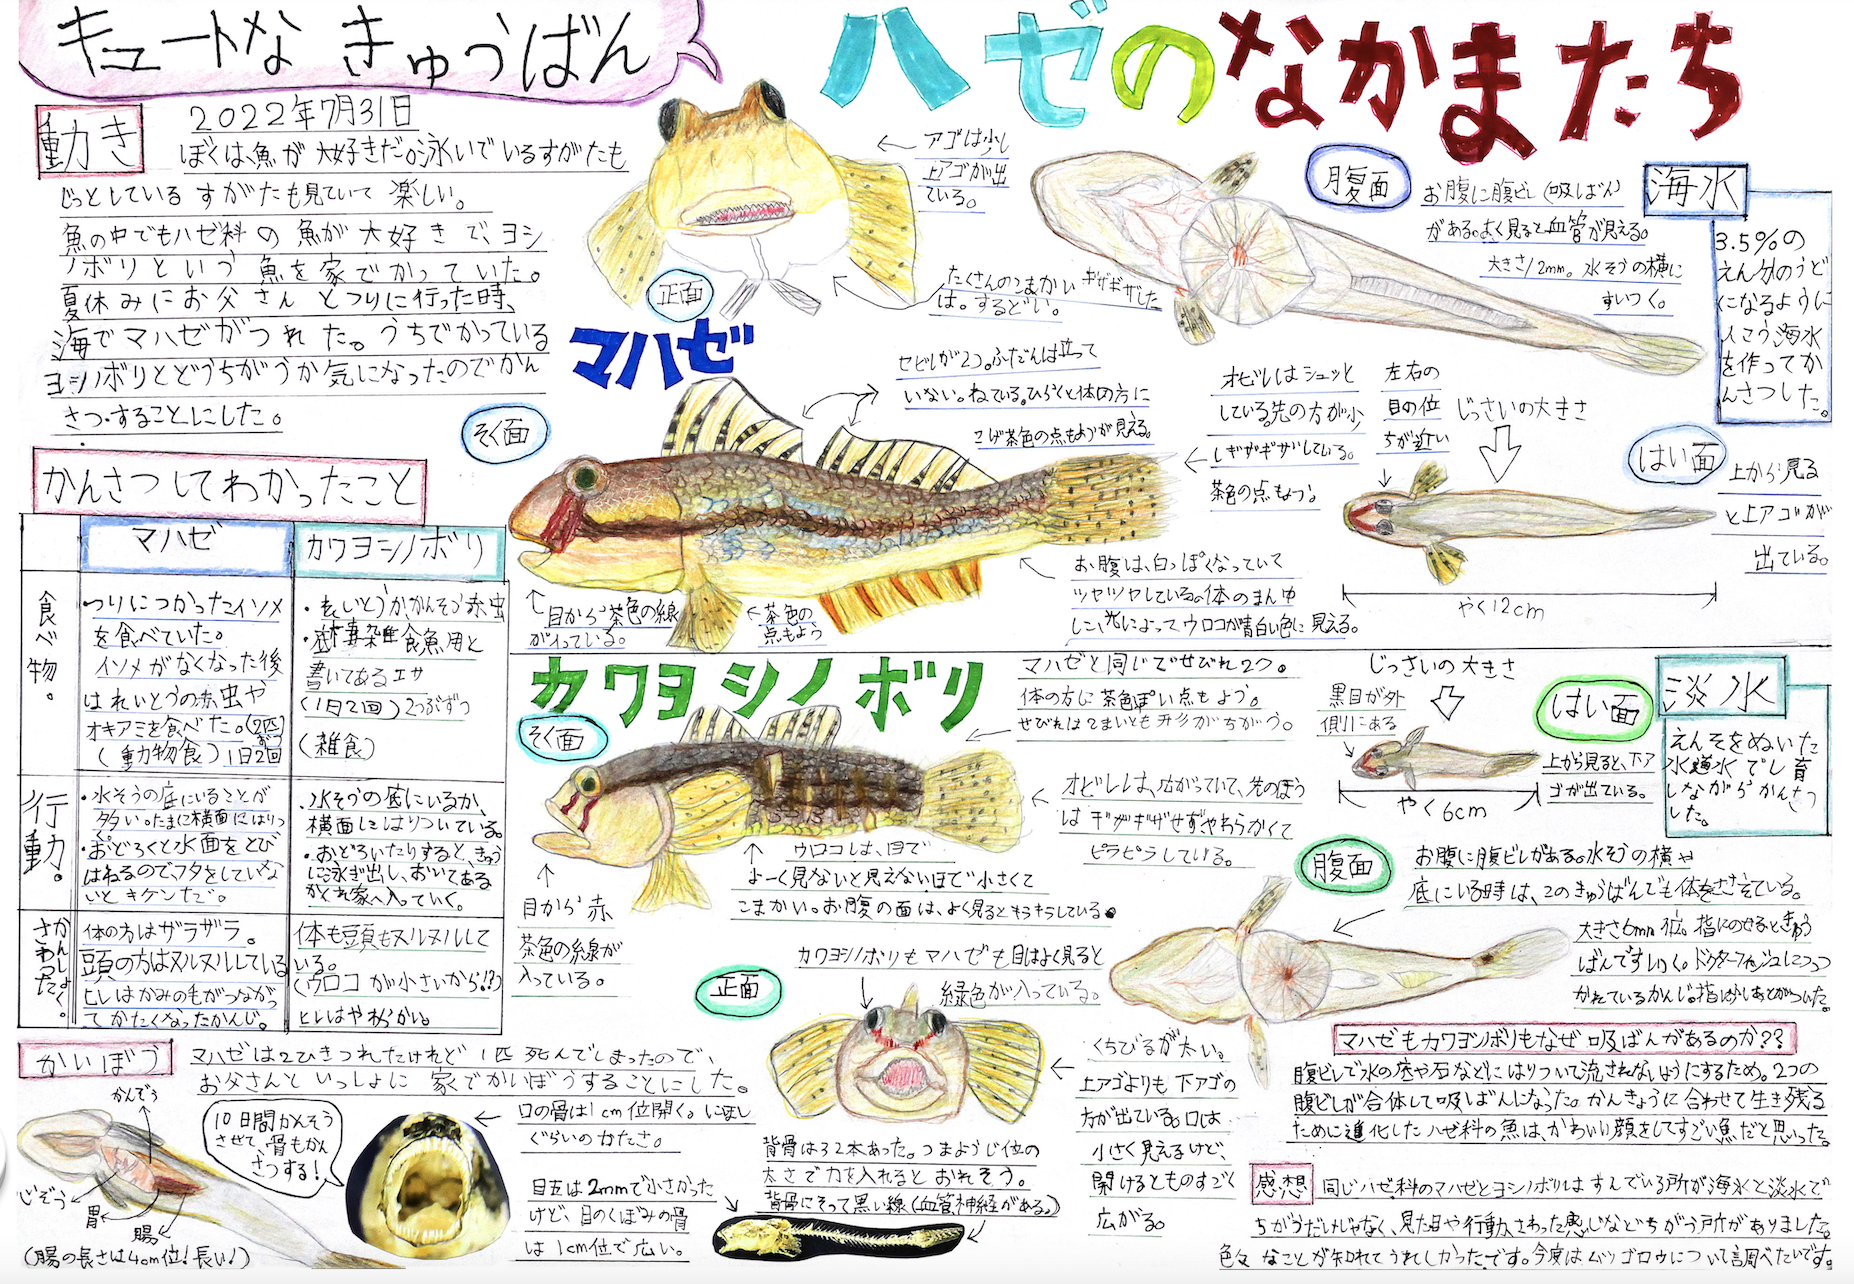 キュートな きゅうばん
ハゼのなかまたち
動き
2022年7月31日
ぼくは、魚が大好きだ。泳いでいるすがたも
じっとしているすがたも見ていて楽しい。
魚の中でもハゼ科の魚が大好きで、ヨシ
ノボリという魚を家でかっていた。
夏休みにお父さんとつりに行った時、
海でマハゼがつれた。うちでかっている
ヨシノボリとどうちがうか気になったのでかん
さつすることにした。
かんさつしてわかったこと
マハゼ
カワヨシノボリ
食べ物。
・つりにつかったイソメ
を食べていた。
イソメがなくなった後
はれいとうの赤虫や
オキアミを食べた。(2匹
(動物食)1日2回
・れいとうかかんそう赤虫
雑食魚用と
書いてあるエサ
(1日2回)2つぶずつ
(雑食)
行動。
・水そうの底にいることが
多い。たまに横面にはりつ
く。
・おどろくと水面をとび
はねるのでフタをしていな
いとキケンだ。
・水そうの底にいるか、
横面にはりついている。
・おどろいたりすると、きゅう
に泳ぎ出し、おいてある
かくれ家へ入っていく。
かんしょく。
さわった
体の方はザラザラ。
頭の方はヌルヌルしている
ヒレはかみの毛がつながっ
てかたくなったかんじ。
体も頭もヌルヌルして
いる。
(ウロコが小さいから!?)
ヒレはやわらかい。
かいぼう
マハゼは2ひきつれたけれど1匹死んでしまったので、
お父さんといっしょに家でかいぼうすることにした。
かんぞう
じぞう
胃
腸
(腸の長さは4cm位!長い!)
10日間かんそう
させて、骨もかん
さつする!
口の骨は1cm位開く。にぼし
ぐらいのかたさ。
目玉は2mmで小さかった
けど、目のくぼみの骨
は1cm位で広い。
背骨は32本あった。つまようじ位の
太さで力を入れるとおれそう。
背骨にそって黒い線(血管神経がある。)
マハゼ
正面
アゴは少し
上アゴが出
ている。
たくさんのこまかいギザギザした
は。するどい。
腹面
お腹に腹ビレ(吸ばん)
がある。よく見ると血管が見える。
大きさ12mm。水そうの横に
すいつく。
海水
3.5%の
えん分のうど
になるように
人こう海水
を作ってか
んさつした。
そく面
セビレが2つ。ふだんは立って
いない。ねている。ひらくと体の方に
こげ茶色の点もようが見える。
オビレはシュッと
している先の方が少
しギザギザしている。
茶色の点もよう。
左右の
目の位
ちが近い
じっさいの大きさ
はい面
上から見る
と上アゴが
出ている。
やく12cm
目から茶色の線
が入っている。
茶色の
点もよう
お腹は、白っぽくなっていて
ツヤツヤしている。体のまん中
に、光によってウロコが青白い色に見える。
カワヨシノボリ
そく面
マハゼと同じでせびれ2つ。
体の方に茶色ぽい点もよう。
せびれは2まいとも形がちがう。
オビレは、広がっていて、先のほう
はギザギザせずやわらかくて
ピラピラしている。
ウロコは、目で
よーく見ないと見えないほど小さくて
こまかい。お腹の面は、よく見るとキラキラしている。
目から赤
茶色の線が
入っている。
じっさいの大きさ
黒目が外
側にある
はい面
上から見ると、下ア
ゴが出ている。
やく6cm
淡水
えんそをぬいた
水道水でし育
しながらかんさつ
した。
腹面
お腹に腹ビレがある。水そうの横や
底にいる時は、このきゅうばんでも体をささえている。
大きさ5mm位。指にのせるときゅう
ばんですいつく。ドクターフィッシュにつつ
かれているかんじ。指に少しあとがついた。
正面
カワヨシノボリもマハゼも目はよく見ると
緑色が入っている。
くちびるが太い。
上アゴよりも下アゴの
方が出ている。口は
小さく見えるけど、
開けるとものすごく
広がる。
マハゼもカワヨシノボリもなぜ吸ばんがあるのか??
腹ビレで水の底や石などにはりついて流されないようにするため。2つの
腹ビレが合体して吸ばんになった。かんきょうに合わせて生き残る
ために進化したハゼ科の魚は、かわいい顔をしてすごい魚だと思った。
感想
同じハゼ科のマハゼとヨシノボリはすんでいる所が海水と淡水で
ちがうだけじゃなく、見た目や行動、さわった感じなどちがう所がありました。
色々なことが知れてうれしかったです。今度はムツゴロウについて調べたいです。